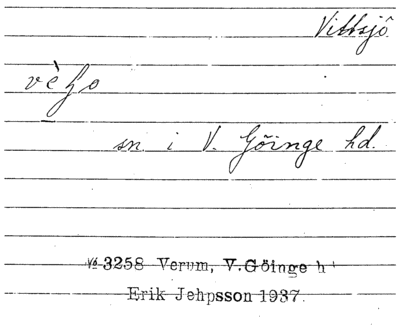 Vittsjö
vèḩo
sn. i V. Göinge hd.
№ 3258 Verum, V. Göinge h
Erik Jehpsson 1937.